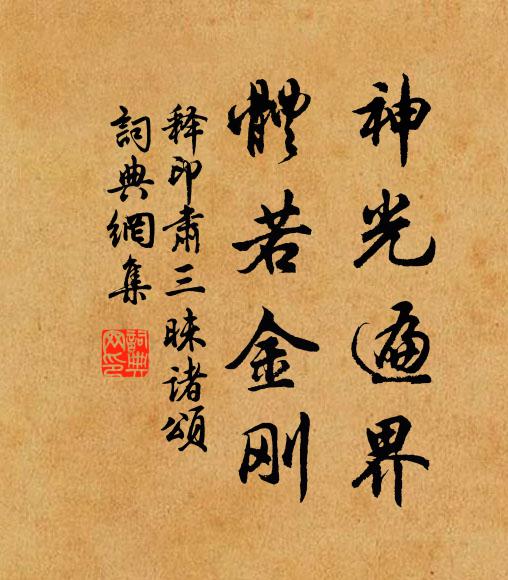 神光遍界
體若金刚
释印肃三昧诸頌
詞典網集
詞典
网印